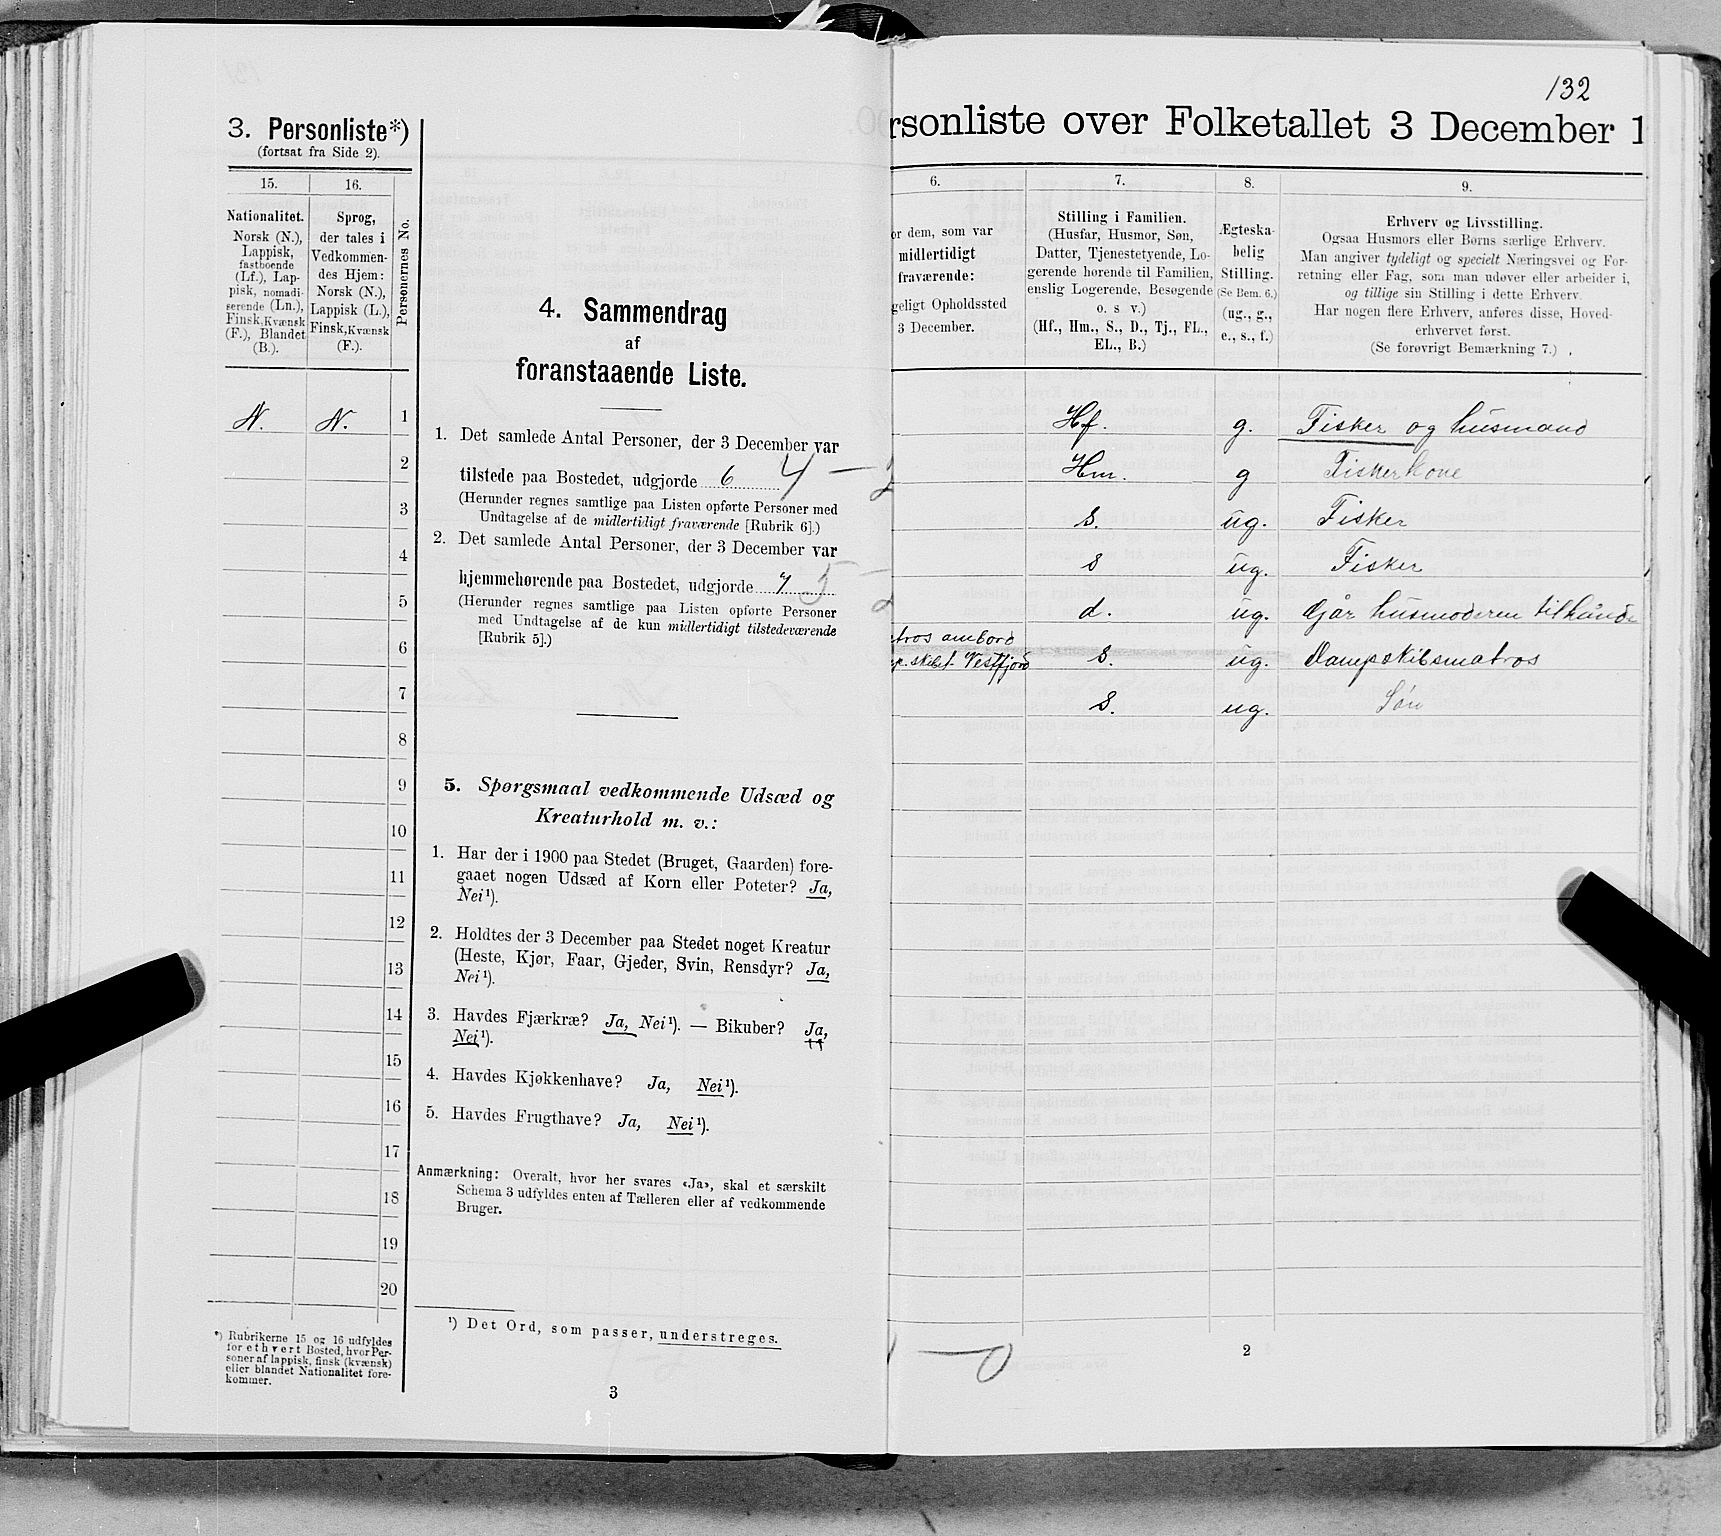 3. Personliste*)
(fortsat fra Side 2).
15.
16.
Nationalitet.
Norsk (N.),
Lappisk,
fastboende
(Lf.), Lap-
pisk, nomadi-
serende (Ln.),
Finsk, Kvænsk
(F.), Blandet
(B.).
Sprog,
der tales i
Vedkommen-
des Hjem:
Norsk (N.),
Lappisk (L.),
Finsk, Kvænsk
(F.).
Personernes No.
N. N. 1
2
3
4
5
6
7
8
9
10
11
12
13
14
15
16
17
18
19
20
*) Rubrikerne 15 og 16 udfyldes
for ethvert Bosted, hvor Per-
soner af lappisk, finsk (kvænsk)
eller blandet Nationalitet fore-
kommer.
4. Sammendrag
af
foranstaaende Liste.
1. Det samlede Antal Personer, der 3 December var
tilstede paa Bostedet, udgjorde 6 4 — 2
(Herunder regnes samtlige paa Listen opførte Personer med
Undtagelse af de midlertidigt fraværende [Rubrik 6].)
2. Det samlede Antal Personer, der 3 December var
hjemmehørende paa Bostedet, udgjorde 7 5 - 2
(Herunder regnes samtlige paa Listen opførte Personer
med Undtagelse af de kun midlertidigt tilstedeværende
[Rubrik 5].)
5. Spørgsmaal vedkommende Udsæd og
Kreaturhold m. v.:
1. Har der i 1900 paa Stedet (Bruget, Gaarden) fore-
gaaet nogen Udsæd af Korn eller Poteter? Ja,
Nei¹).
2. Holdtes der 3 December paa Stedet noget Kreatur
(Heste, Kjør, Faar, Gjeder, Svin, Rensdyr? Ja,
Nei¹).
3. Havdes Fjærkræ? Ja, Nei¹). — Bikuber? Ja,
Nei¹).
4. Havdes Kjøkkenhave? Ja, Nei¹).
5. Havdes Frugthave? Ja, Nei¹).
Anmærkning: Overalt, hvor her svares «Ja», skal et særskilt
Schema 3 udfyldes enten af Tælleren eller af vedkommende
Bruger.
¹) Det Ord, som passer, understreges.
3
132
rsonliste over Folketallet 3 December 1
6.
or dem, som var
midlertidigt
fraværende:
geligt Opholdssted
3 December.
7.
Stilling i Familien.
(Husfar, Husmor, Søn,
Datter, Tjenestetyende, Lo-
gerende hørende til Familien,
enslig Logerende, Besøgende
o. s v.)
(Hf., Hm., S., D., Tj., FL.,
EL., B.)
8.
Ægteska-
belig
Stilling.
(Se Bem. 6.)
(ug., g.,
e., s., f.)
9.
Erhverv og Livsstilling.
Ogsaa Husmors eller Børns særlige Erhverv.
Man angiver tydeligt og specielt Næringsvei og For-
retning eller Fag, som man udøver eller arbeider i,
og tillige sin Stilling i dette Erhverv.
Har nogen flere Erhverv, anføres disse, Hoved-
erhvervet først.
(Se forøvrigt Bemærkning 7.)
Hf. g. Fisker og husmand
Hm. g Fiskerkone
S. ug. Fisker
S ug. Fisker
d. ug. Gjår husmoderen tilhånde
tros ambord
p.skibet Vestfjord S. ug. Dampskibsmatros
S. ug. Søn
— 0
2